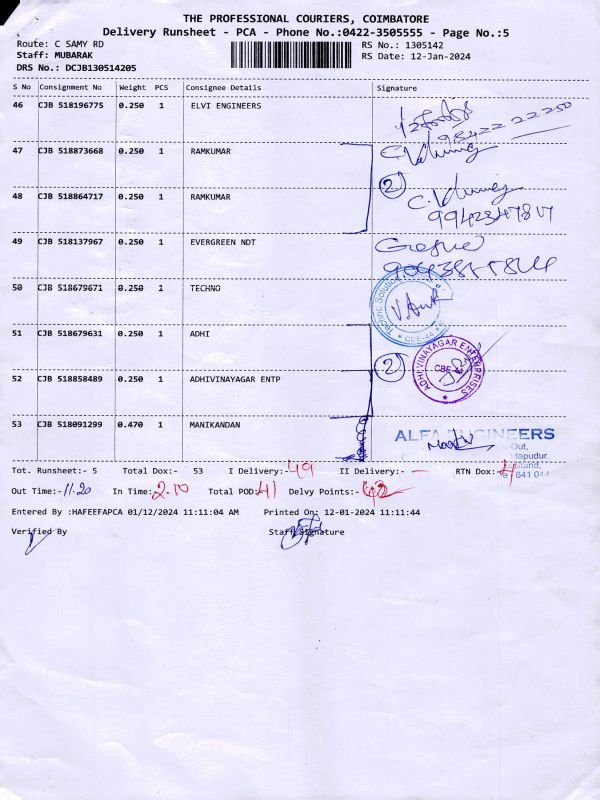 THE PROFESSIONAL COURIERS, COIMBATORE
Delivery Runsheet - PCA - Phone No.:0422-3505555 - Page No.:5
Route: C SAMY RD RS No.: 1305142
Staff: MUBARAK RS Date: 12-Jan-2024
DRS No.: DCJB130514205
S No Consignment No Weight PCS Consignee Details Signature
46 CJB 518196775 0.250 1 ELVI ENGINEERS
98422 22250
47 CJB 518873668 0.250 1 RAMKUMAR
2
48 CJB 518864717 0.250 1 RAMKUMAR
49 CJB 518137967 0.250 1 EVERGREEN NDT
50 CJB 518679671 0.250 1 TECHNO
Techno Solution
CBE-44
51 CJB 518679631 0.250 1 ADHI
2
ADHI VINAYAGAR ENTERPRISES
CBE-44
52 CJB 518858489 0.250 1 ADHIVINAYAGAR ENTP
53 CJB 518091299 0.470 1 MANIKANDAN
ALFA ENGINEERS
Out,
641 044
Tot. Runsheet:- 5 Total Dox:- 53 I Delivery:- 49 II Delivery:- — RTN Dox:- 4
Out Time:- 11.20 In Time:- 2.10 Total POD:- 41 Delvy Points:-
Entered By :HAFEEFAPCA 01/12/2024 11:11:04 AM Printed On: 12-01-2024 11:11:44
Verified By Staff Signature